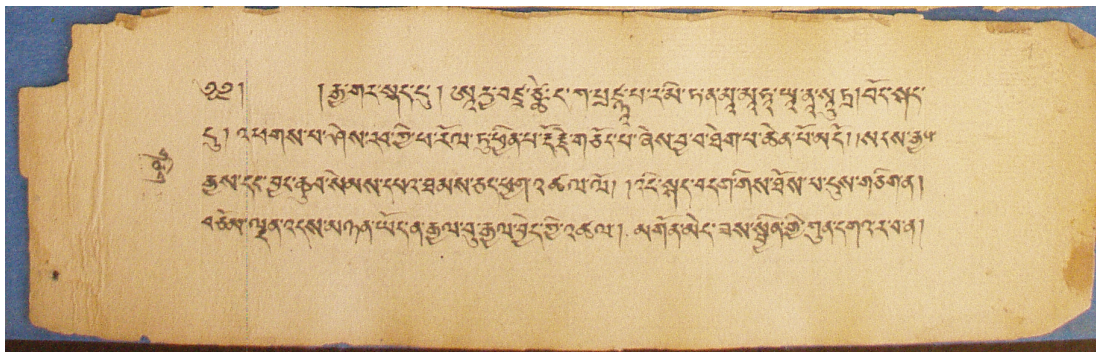 ༄༅། །རྒྱ་གར་སྐད་དུ། ཨཱརྱ་བཛྲ་ཙྪེ་ད་ཀ་པྲཛྙཱ་པ་ར་མི་ཏན་མཱ་མ་ཧཱ་ཡཱ་ན་སཱུ་ཏྲ། བོད་སྐད་
དུ། འཕགས་པ་ཤེས་རབ་ཀྱི་ཕ་རོལ་ཏུ་ཕྱིན་པ་རྡོ་རྗེ་གཅོད་པ་ཞེས་བྱ་བ་ཐེག་པ་ཆེན་པོ་མདོ། །སངས་རྒྱ
རྒྱས་དང་བྱང་ཆུབ་སེམས་དཔའ་ཐམས་ཅད་ཕྱག་འཚལ་ལོ། །འདི་སྐད་བདག་གིས་ཐོས་པ་དུས་གཅིག་ན།
བཅོམ་ལྡན་འདས་མཉན་ཡོད་ན་རྒྱལ་བུ་རྒྱལ་བྱེད་ཀྱི་འཚལ། མགོན་མེད་ཟས་སྦྱིན་གྱི་ཀུན་དགའ་ར་བ་ན།